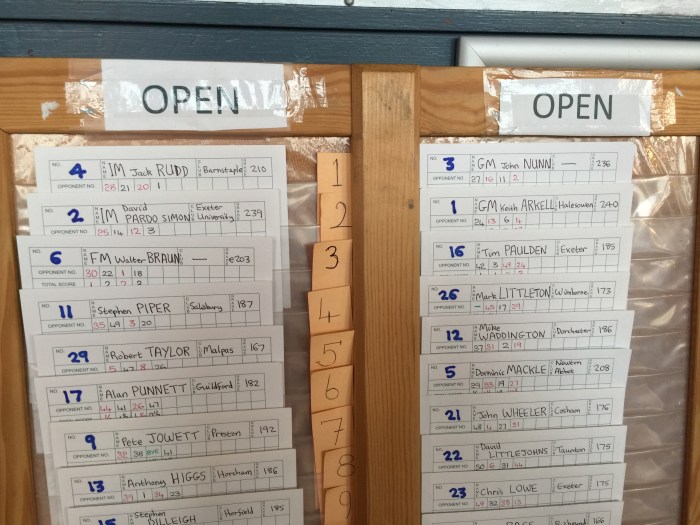 OPEN
OPEN
NO. 4 NAME IM Jack RUDD CLUB Barnstaple GRADE 210
OPPONENT NO. 28 21 20 1
NO. 2 NAME IM David PARDO SIMON CLUB Exeter University 239
OPPONENT NO. 25 14 12 3
NO. 6 FM Walter BRAUN — e203
OPPONENT NO. 30 22 1 18
TOTAL SCORE 1 2 2 2
NO. 11 Stephen PIPER Salisbury 187
OPPONENT NO. 35 49 3 20
NO. 29 Robert TAYLOR Malpas 167
OPPONENT NO. 5 47 8 26
NO. 17 Alan PUNNETT Guildford 182
OPPONENT NO. 44 41 26 47
NO. 9 Pete JOWETT Preston 192
OPPONENT NO. 32 38 BYE 41
NO. 13 Anthony HIGGS Horsham 186
OPPONENT NO. 39 1 34 23
15 Stephen DILLEIGH Horfield 185
1
2
3
4
5
6
7
8
9
NO. 3 GM John NUNN — 236
OPPONENT NO. 27 16 11 2
NO. 1 GM Keith ARKELL Halesowen 240
OPPONENT NO. 24 13 6 4
NO. 16 Tim PAULDEN Exeter 185
OPPONENT NO. 42 3 49 24
NO. 26 Mark LITTLETON Wimborne 173
OPPONENT NO. — 45 17 29
NO. 12 Mike WADDINGTON Dorchester 186
OPPONENT NO. 37 31 2 19
NO. 5 Dominic MACKLE Newton Abbot 208
OPPONENT NO. 29 33 19 27
NO. 21 John WHEELER Cosham 176
OPPONENT NO. 48 4 27 31
NO. 22 David LITTLEJOHNS Taunton 175
OPPONENT NO. 50 6 31 44
NO. 23 Chris LOWE Exeter 175
OPPONENT NO. 49 32 38 13
166